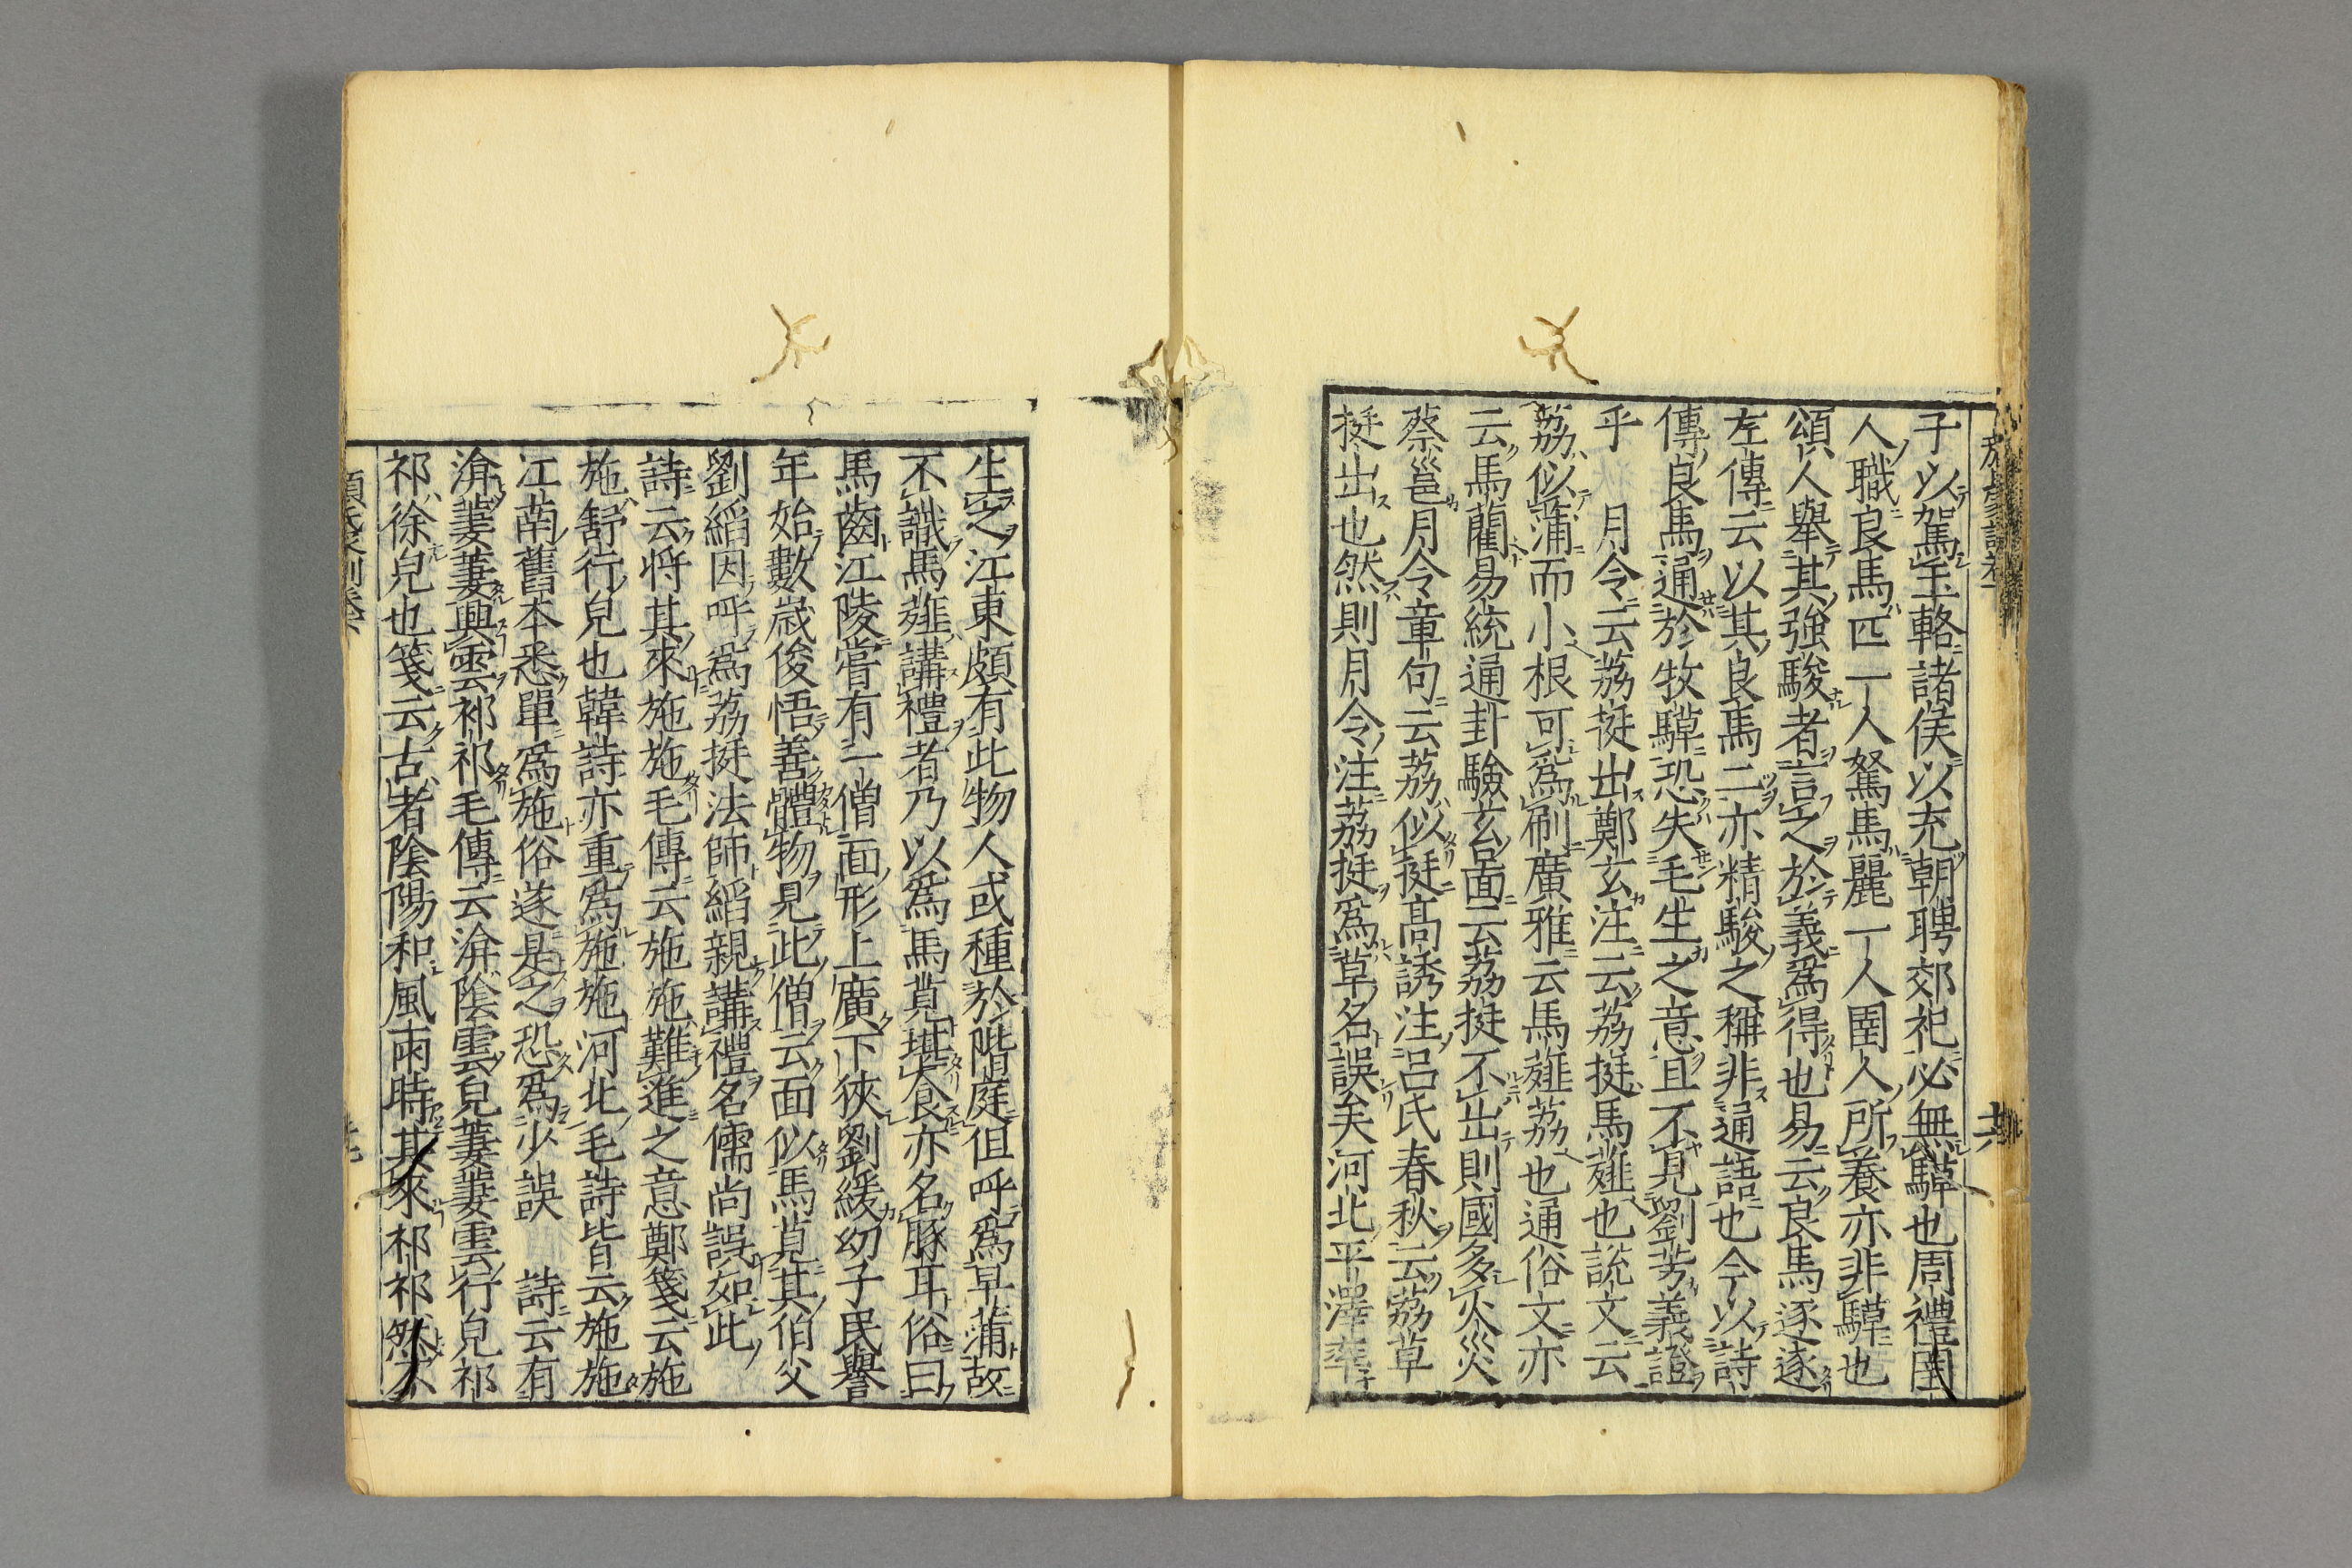 子以駕玉輅諸侯以充朝聘郊祀必無騲也周禮圉
人職良馬匹一人駑馬麗一人圉人所養亦非騲也
頌人舉其強駿者言之於義爲得也易云良馬逐逐
左傳云以其良馬二亦精駿之稱非通語也今以詩
傳良馬通於牧騲恐失毛生之意且不見劉芳義證
乎　月令云荔挺出鄭玄注云荔挺馬薤也說文云
荔似蒲而小根可爲刷廣雅云馬薤荔也通俗文亦
云馬藺易統通卦驗玄啚云荔挺不出則國多火災
蔡邕月令章句云荔似挺高誘注呂氏春秋云荔草
挺出也然則月令注荔挺爲草名誤矣河北平澤率
生之江東頗有此物人或種於階庭但呼爲旱蒲故
不識馬薤講禮者乃以爲馬莧堪食亦名豚耳俗曰
馬齒江陵嘗有一僧面形上廣下狹劉緩幼子民譽
年始數歲俊悟善體物見此僧云面似馬莧其伯父
劉縚因呼爲荔挺法師縚親講禮名儒尚誤如此
詩云將其來施施毛傳云施施難進之意鄭箋云施
施舒行皃也韓詩亦重爲施施河北毛詩皆云施施
江南舊本悉單爲施俗遂是之恐爲少誤　詩云有
渰萋萋興雲祁祁毛傳云渰陰雲皃萋萋雲行皃祁
祁徐皃也箋云古者陰陽和風雨時其來祁祁然不